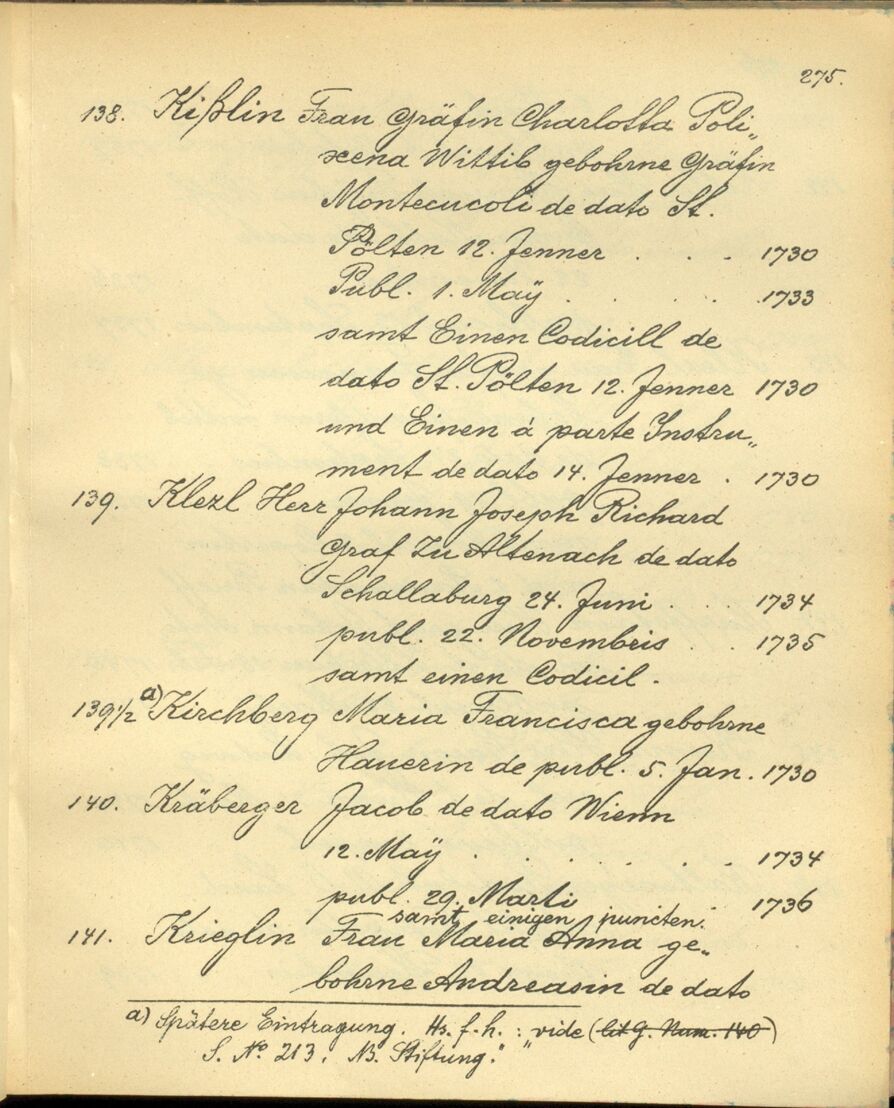 275.
138. Kißlin Frau Gräfin Charlotta Poli„
xena Wittib gebohrne Gräfin
Montecucoli de dato St.
Pölten 12. Jenner . . . 1730
Publ. 1. Maÿ . . . . 1733
samt Einen Codicill de
dato St. Pölten 12. Jenner 1730
und Einen á parte Instru„
ment de dato 14. Jenner . 1730
139. Klezl Herr Johann Joseph Richard
Graf Zu Altenach de dato
Schallaburg 24. Juni . . . 1734
publ. 22. Novembris . . 1735
samt einen Codicil.
139 1/2 a) Kirchberg Maria Francisca gebohrne
Hauerin de publ. 5. Jan. 1730
140. Kräberger Jacob de dato Wienn
12. Maÿ . . . . . . 1734
publ. 29. Marti . . 1736
samt einigen puncten.
141. Krieglin Frau Maria Anna ge„
bohrne Andreasin de dato
a) Spätere Eintragung. Hs. f. h. : „vide (lit G. Num. 140)
S. No. 213. NB. Stiftung."